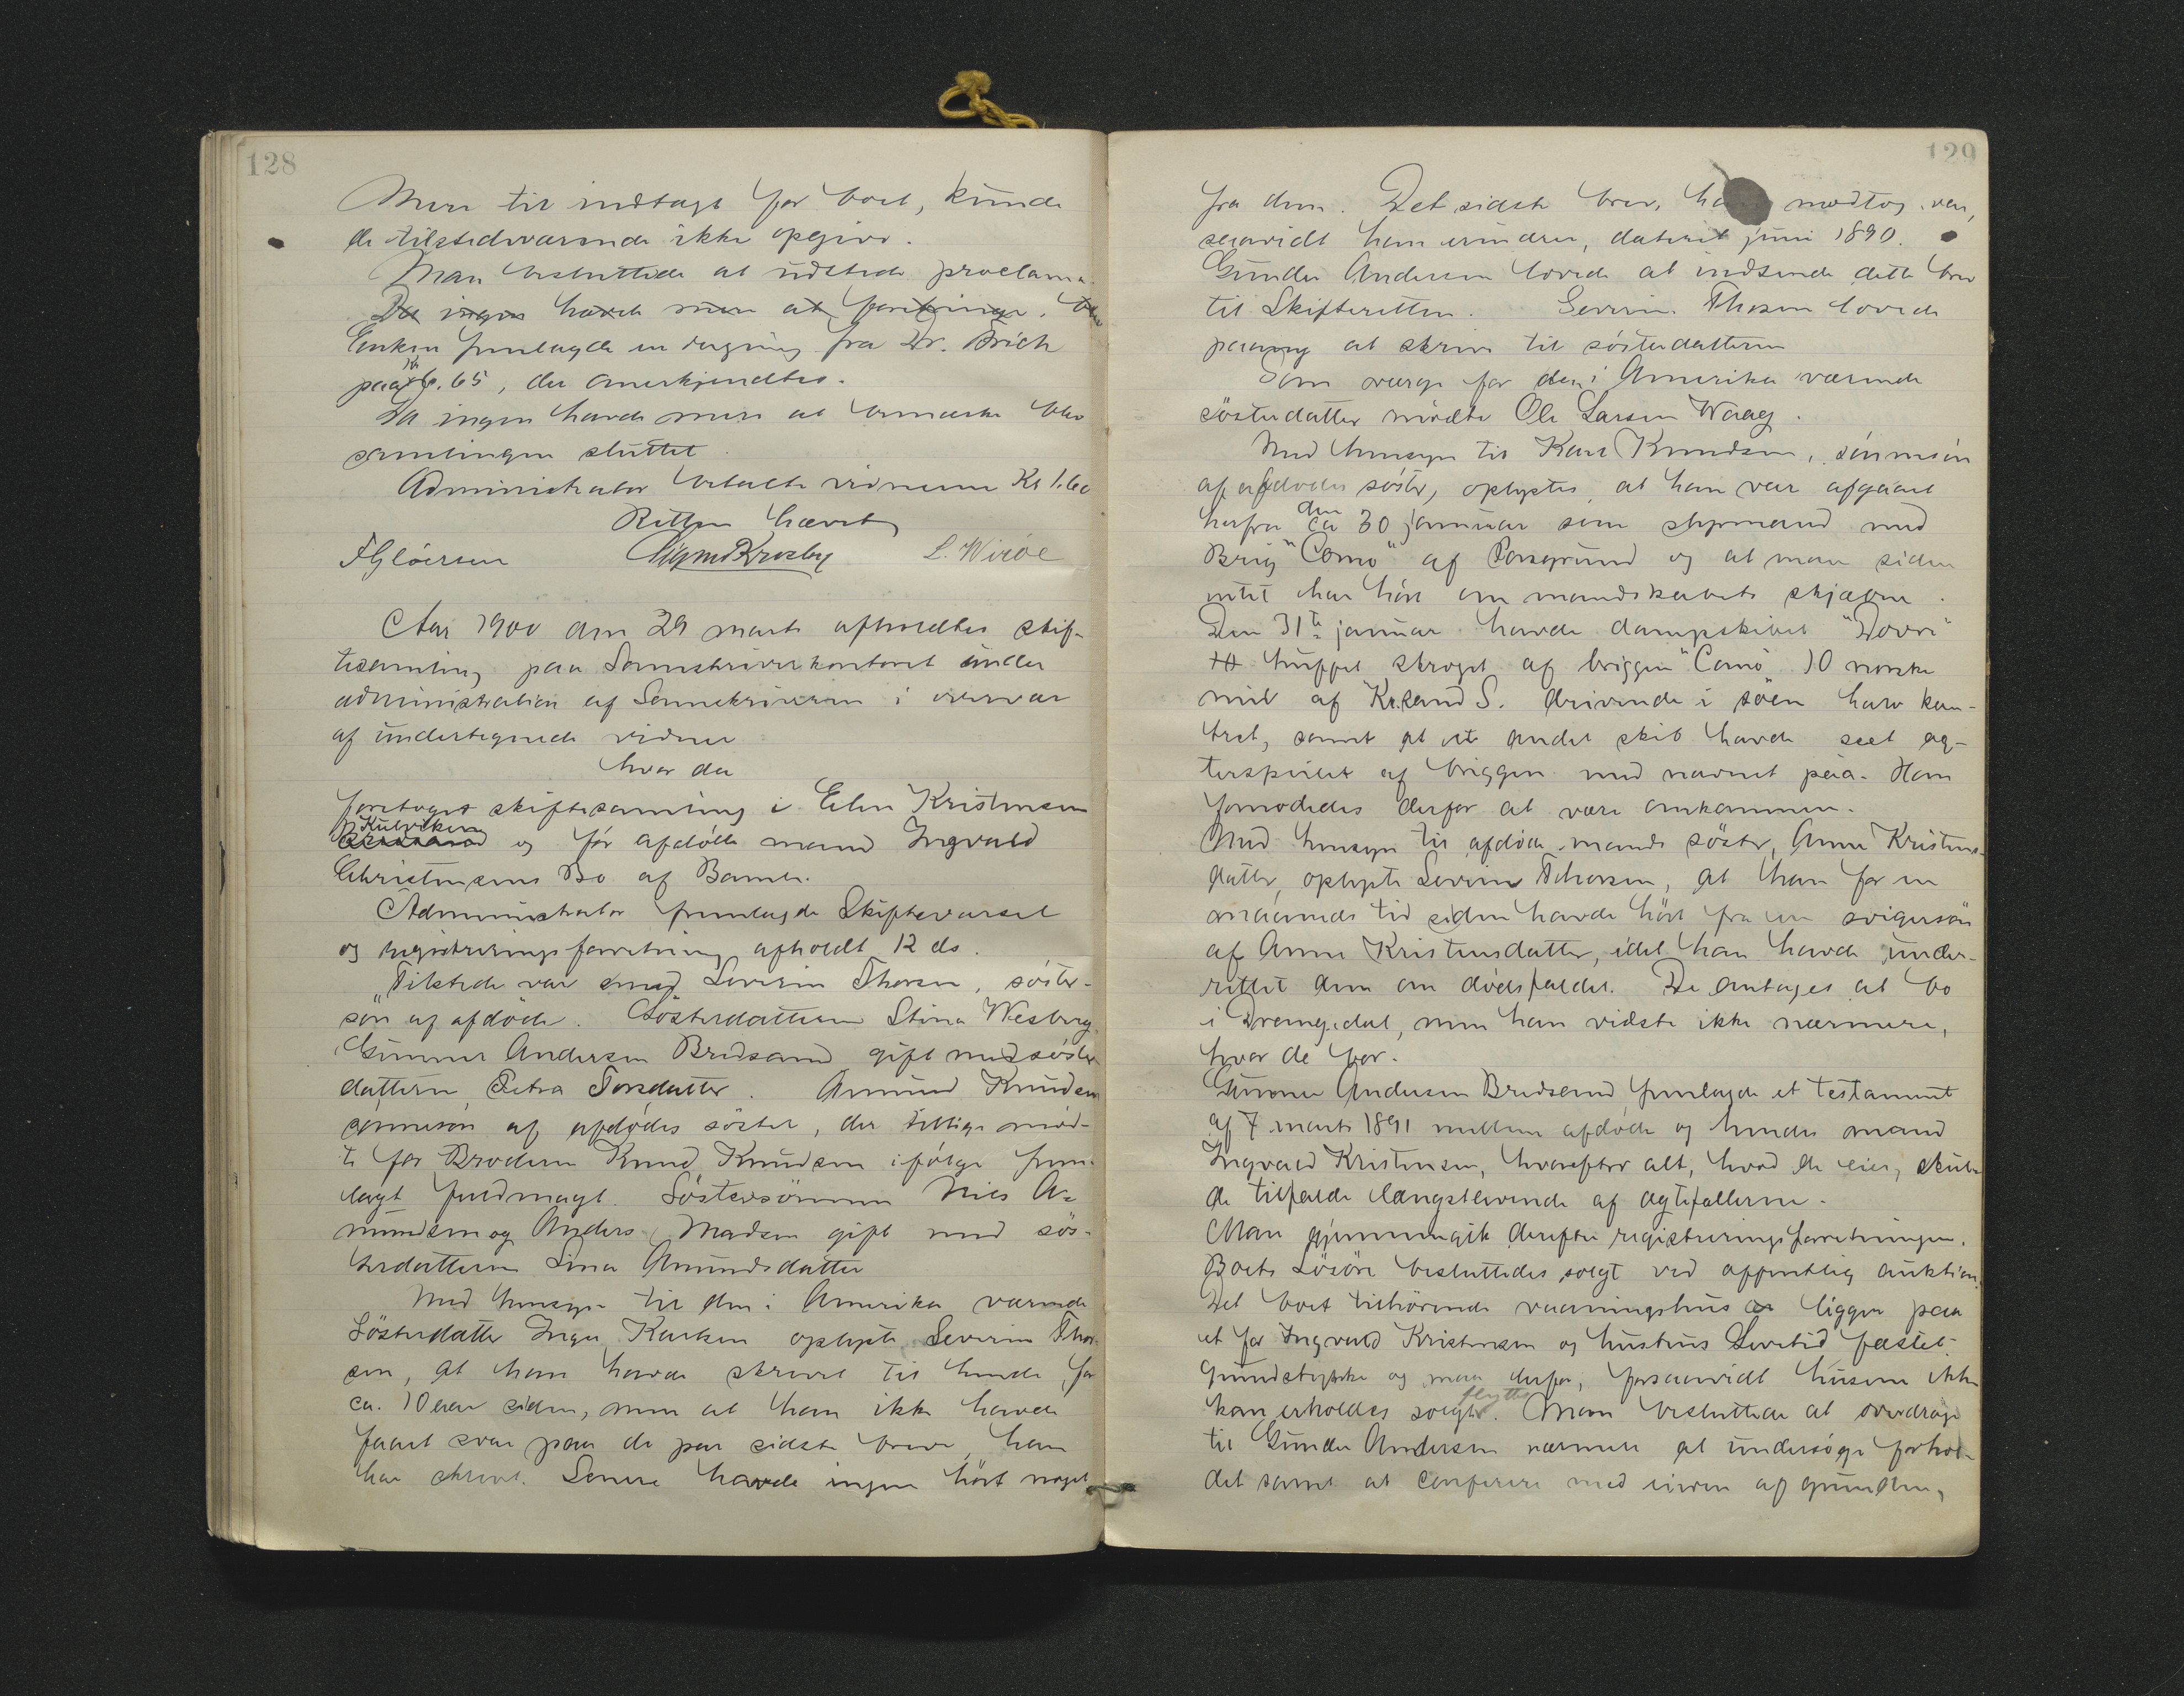 128
Mere til indtægt for boet, kunde
de tilstedeværende ikke opgive.
Man besluttede at udstede proclama.
Da ingen havde mere at forebringe, blev
Enken fremlagde en regning fra Dr. Brich
paa kr 6.65, der anerkjendtes.
Da ingen havde mere at bemærke blev
samlingen sluttet.
Administrator betalte vidnerne Kr 1.60
Retten hævet
FGlöersen Sigmd Krosby L. Wiröe
Aar 1900 den 29 marts afholdtes skif-
tesamling paa Sorenskriverkontoret under
administration af Sorenskriveren i overvær
af undertegnede vidner
hvor da
foretoges skiftesamling i Elen Kristensen
Kulviken og før afdøde mand Ingvald
Christensens Bo af Bamle.
Administrator fremlagde Skiftevarsel
og registreringsforretning afholdt 12 ds.
Tilstede var Severin Thorsen, söster-
sön af afdöde. Sösterdatteren Stina Wesberg
Gunner Andersen Bredsand gift med söster
datteren Petra Torsdatter. Amund Knudsen
sönnesön af afdödes söster, der tillige möd-
te for Broderen Knud Knudsen ifölge frem-
lagt fuldmagt. Söstersönnen Nils A-
mundsen og Anders Madsen gift med sös-
terdatteren Lina Amundsdatter
Med hensyn til den i Amerika værende
Sösterdatter Inger Karken oplyste Severin Thor-
sen, at han havde skrevet til hende for
ca. 10 aar siden, men at han ikke havde
faaet svar paa de par sidste breve, han
har skrevet. Senere havde ingen hört noget
129
fra dem. Det sidste brev, han modtog var,
saavidt han erindrer, dateret juni 1890.
Gunder Andersen lovede at indsende dette brev
til Skifteretten. Severin Thosen lovede
paany at skrive til sösterdatteren
Som værge for den i Amerika værende
sösterdatter mödte Ole Larsen Waag.
Med hensyn til Karl Knudsen, sönnesön
af afdödes söster, oplystes, at han var afgaaet
herfra den ca 30 januar som styrmand med
Brig "Como" af Porsgrund og at man siden
intet har hört om mandskabets skjæbne.
Den 31te januar havde dampskibet "Dovre"
truffet skroget af briggen "Como" 10 norske
mil af Kr.sand S. drivende i söen halv kan-
tret, samt at et andet skib havde seet ag-
terspeilet af briggen med navnet paa. Han
formodedes derfor at være omkommen.
Med hensyn til afdöde mands söster, Anne Kristens-
datter, oplyste Severin Thorsen, at han for en
maaneds tid siden havde hört fra en svigersön
af Anne Kristensdatter, idet han havde under-
rettet dem om dödsfaldet. De antages at bo
i Drangedal, men han vidste ikke nærmere,
hvor de bor.
Gunner Andersen Bredsand fremlagde et testament
af 7 marts 1891 mellem afdöde og hendes mand
Ingvald Kristensen, hvorefter alt, hvad de eier, skul-
de tilfalde længstlevende af ægtefællerne.
Man gjennemgik derefter registreringsforretningen.
Boets Lösöre besluttedes solgt ved offentlig auktion.
Det boet tilhörende vaaningshus ligger paa
et for Ingvald Kristensen og hustrus Levetid fæstet
grundstykke og maa derfor, forsaavidt husene ikke
kan erholdes solgte flyttes. Man besluttede at overdrage
til Gunder Andersen nærmere at undersöge forhol-
det samt at conferere med eieren af grunden,